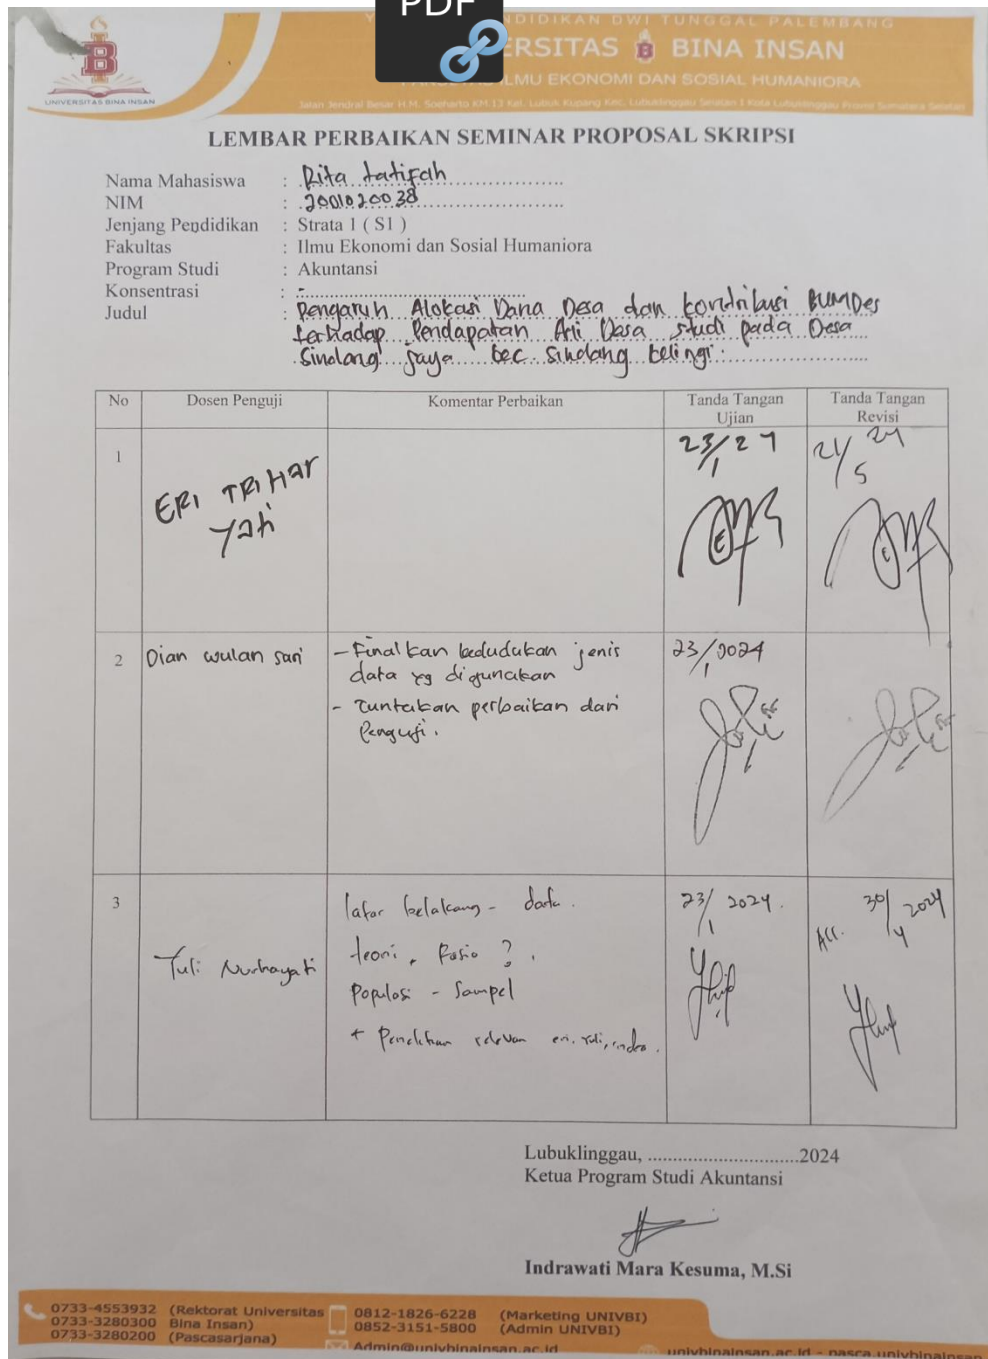 PDF
YAYASAN PENDIDIKAN DWI TUNGGAL PALEMBANG
UNIVERSITAS BINA INSAN
FAKULTAS ILMU EKONOMI DAN SOSIAL HUMANIORA
Jalan Jendral Besar H.M. Soeharto KM.13 Kel. Lubuk Kupang Kec. Lubuklinggau Selatan I Kota Lubuklinggau Provinsi Sumatera Selatan
UNIVERSITAS BINA INSAN
LEMBAR PERBAIKAN SEMINAR PROPOSAL SKRIPSI
Nama Mahasiswa : Rita Latifah
NIM : 2001020038
Jenjang Pendidikan : Strata 1 ( S1 )
Fakultas : Ilmu Ekonomi dan Sosial Humaniora
Program Studi : Akuntansi
Konsentrasi : -
Judul : Pengaruh Alokasi Dana Desa dan kontribusi BUMDes
terhadap Pendapatan Asli Desa studi pada Desa
Sindang Jaya kec sindang kelingi.
No Dosen Penguji Komentar Perbaikan Tanda Tangan Ujian Tanda Tangan Revisi
1 ERI TRIHAR
Yati
23/1 24
21/5 24
2 Dian wulan sari
- Finalkan kedudukan jenis
data yg digunakan
- Tuntaskan perbaikan dari
Penguji.
23/1 2024
3 Yuli Nurhayati
latar belakang - data.
teori, Rasio ?.
Populasi - Sampel
+ Penelitian relevan eri, yuli, indra.
23/1 2024.
30/4 2024
Acc.
Lubuklinggau, ............................2024
Ketua Program Studi Akuntansi
Indrawati Mara Kesuma, M.Si
0733-4553932 (Rektorat Universitas
0733-3280300 Bina Insan)
0733-3280200 (Pascasarjana)
0812-1826-6228 (Marketing UNIVBI)
0852-3151-5800 (Admin UNIVBI)
Admin@univbinainsan.ac.id
univbinainsan.ac.id - pasca.univbinainsan